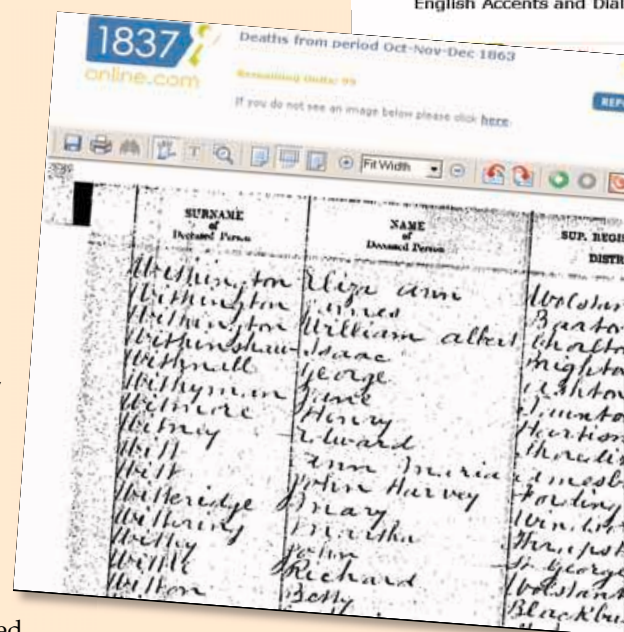 English Accents and Dial
1837
online.com
Deaths from period Oct-Nov-Dec 1863
Remaining Units: 99
If you do not see an image below please click here.
REP
Fit Width
SURNAME
of
Deceased Person
NAME
of
Deceased Person
SUP. REGIS
DISTR
Withington Eliza Ann
Withington James
Withington William Albert
Withinshaw Isaac
Withnall George
Withyman Jane
Witmore Henry
Witney Edward
Witt Ann Maria
Witt John Harvey
Witteridge Mary
Wittering Martha
Witty John St George
Wittle Richard
Witton Betty Blackbu
ed